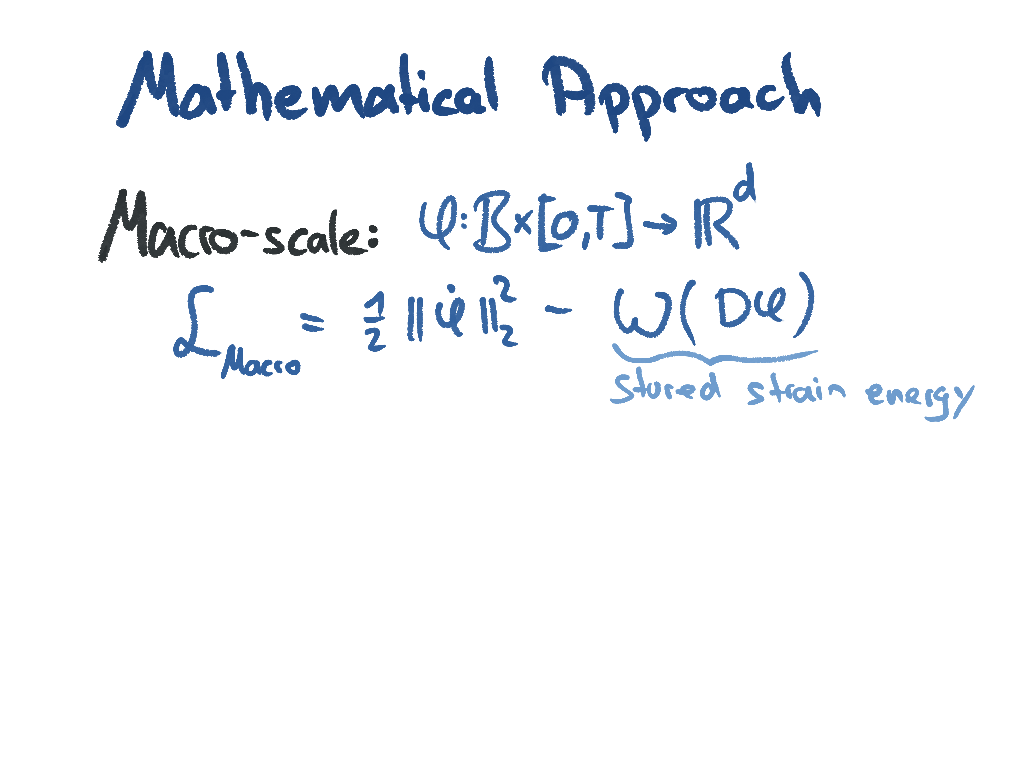 Mathematical Approach
Macro-scale: φ: B×[0,T] → ℝ^d
ℒ_Macro = 1/2 ‖φ̇‖₂² - W(Dφ)
stored strain energy